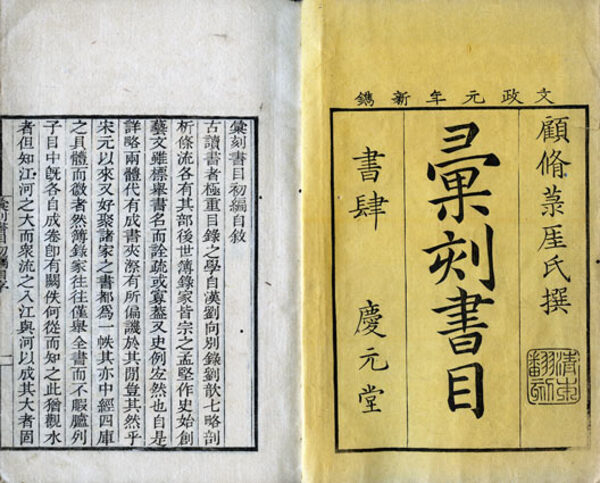 文政元年新鐫
顧脩菉厓氏撰
清本翻刻
彙刻書目
書肆 慶元堂
彙刻書目初編自敘
古讀書者極重目錄之學自漢劉向別錄劉歆七略剖
析條流各有其部後世簿錄家皆宗之孟堅作史始創
藝文雖標舉書名而詮疏或寡葢又史例宐然也自是
詳略兩體代有成書夾漈有所偏譏於其閒豈其然乎
宋元以來又好聚諸家之書都爲一帙其亦中經四庫
之具體而微者然簿錄家往往僅舉全書而不暇臚列
子目中旣各自成卷卽有闕佚何從而知之此猶觀水
者但知江河之大而衆流之入江與河以成其大者固